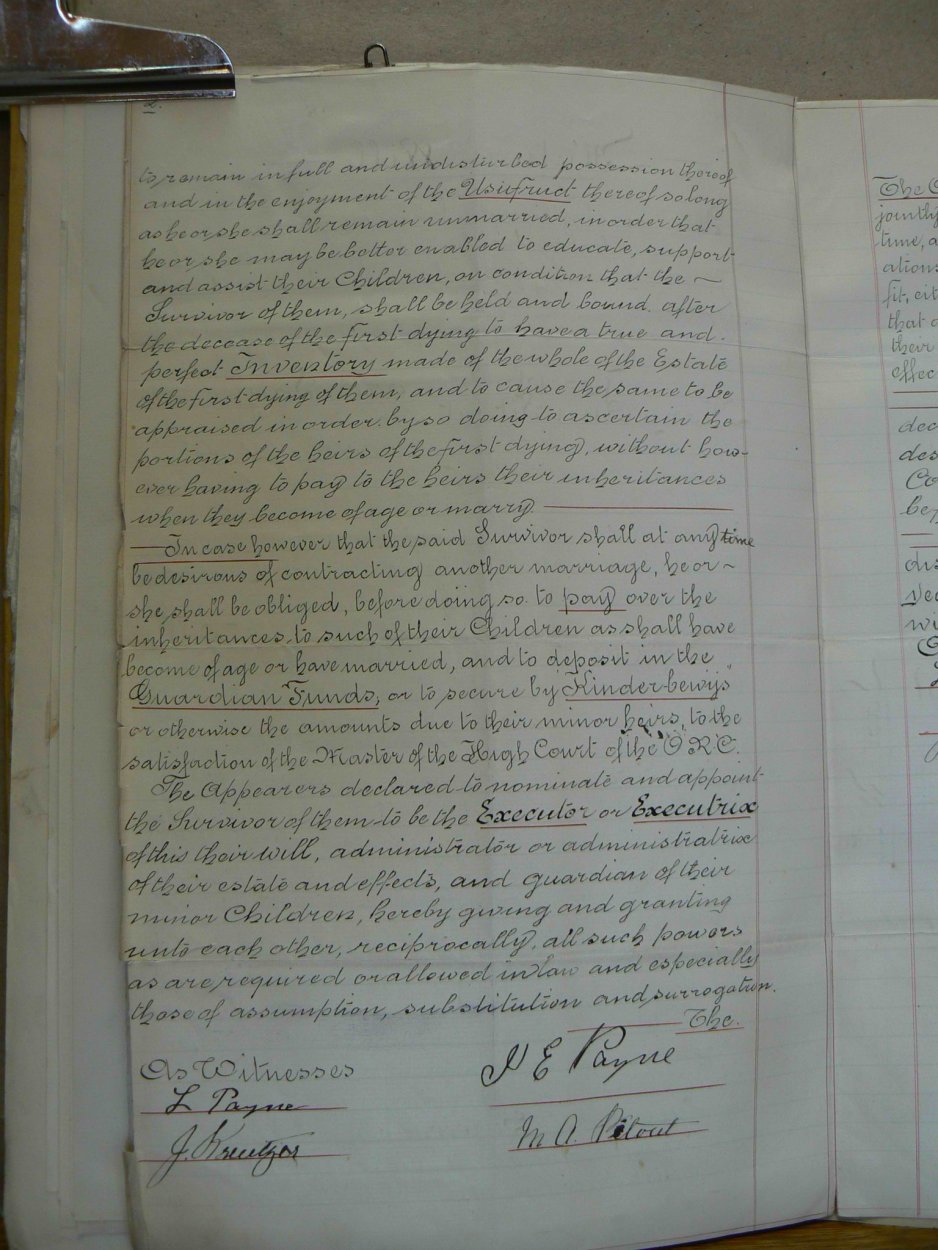 2.
to remain in full and undisturbed possession thereof
and in the enjoyment of the Usufruct thereof so long
as he or she shall remain unmarried, in order that
he or she may be better enabled to educate, support
and assist their Children, on condition that the ~
Survivor of them, shall be held and bound after
the decease of the first dying to have a true and
perfect Inventory made of the whole of the Estate
of the first dying of them, and to cause the same to be
appraised in order by so doing to ascertain the
portions of the heirs of the first dying, without how-
ever having to pay to the heirs their inheritances
when they become of age or marry
— In case however that the said Survivor shall at any time
be desirous of contracting another marriage, he or ~
she shall be obliged, before doing so to pay over the
inheritances to such of their Children as shall have
become of age or have married, and to deposit in the
Guardian Funds, or to secure by "Kinderbewys"
or otherwise the amounts due to their minor heirs, to the
satisfaction of the Master of the High Court of the O.R.C.
The Appearers declared to nominate and appoint
the Survivor of them to be the Executor or Executrix
of this their will, administrator or administratrix
of their estate and effects, and guardian of their
minor Children, hereby giving and granting
unto each other, reciprocally, all such powers
as are required or allowed in law and especially
those of assumption, substitution and surrogation.
The.
As Witnesses
L Payne
E Payne
M. A.
The
jointly
time, a
ations
fit, eit
that
their
effec
dec
des
Co
be
dis
wi